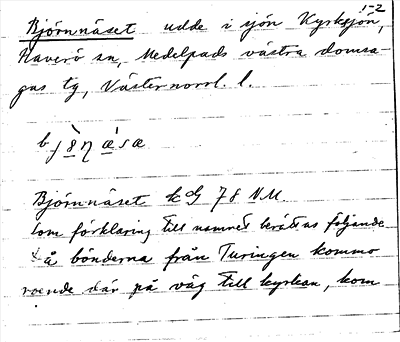 1-2
Björnnäset udde i sjön Kyrksjön,
Haverö sn, Medelpads västra domsa-
gas tg, Västernorrl. l.
Björnnäset kG 78 NM.
Som förklaring till namnet berättas följande
å bönderna från Turingen kommo
roende där på väg till kyrkan, kom